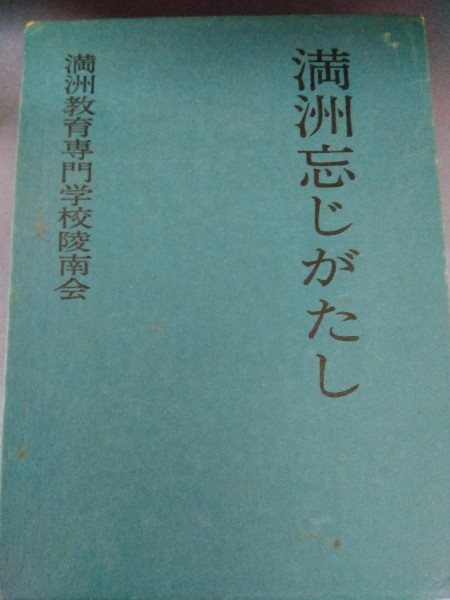 満洲忘じがたし
満洲教育専門学校陵南会